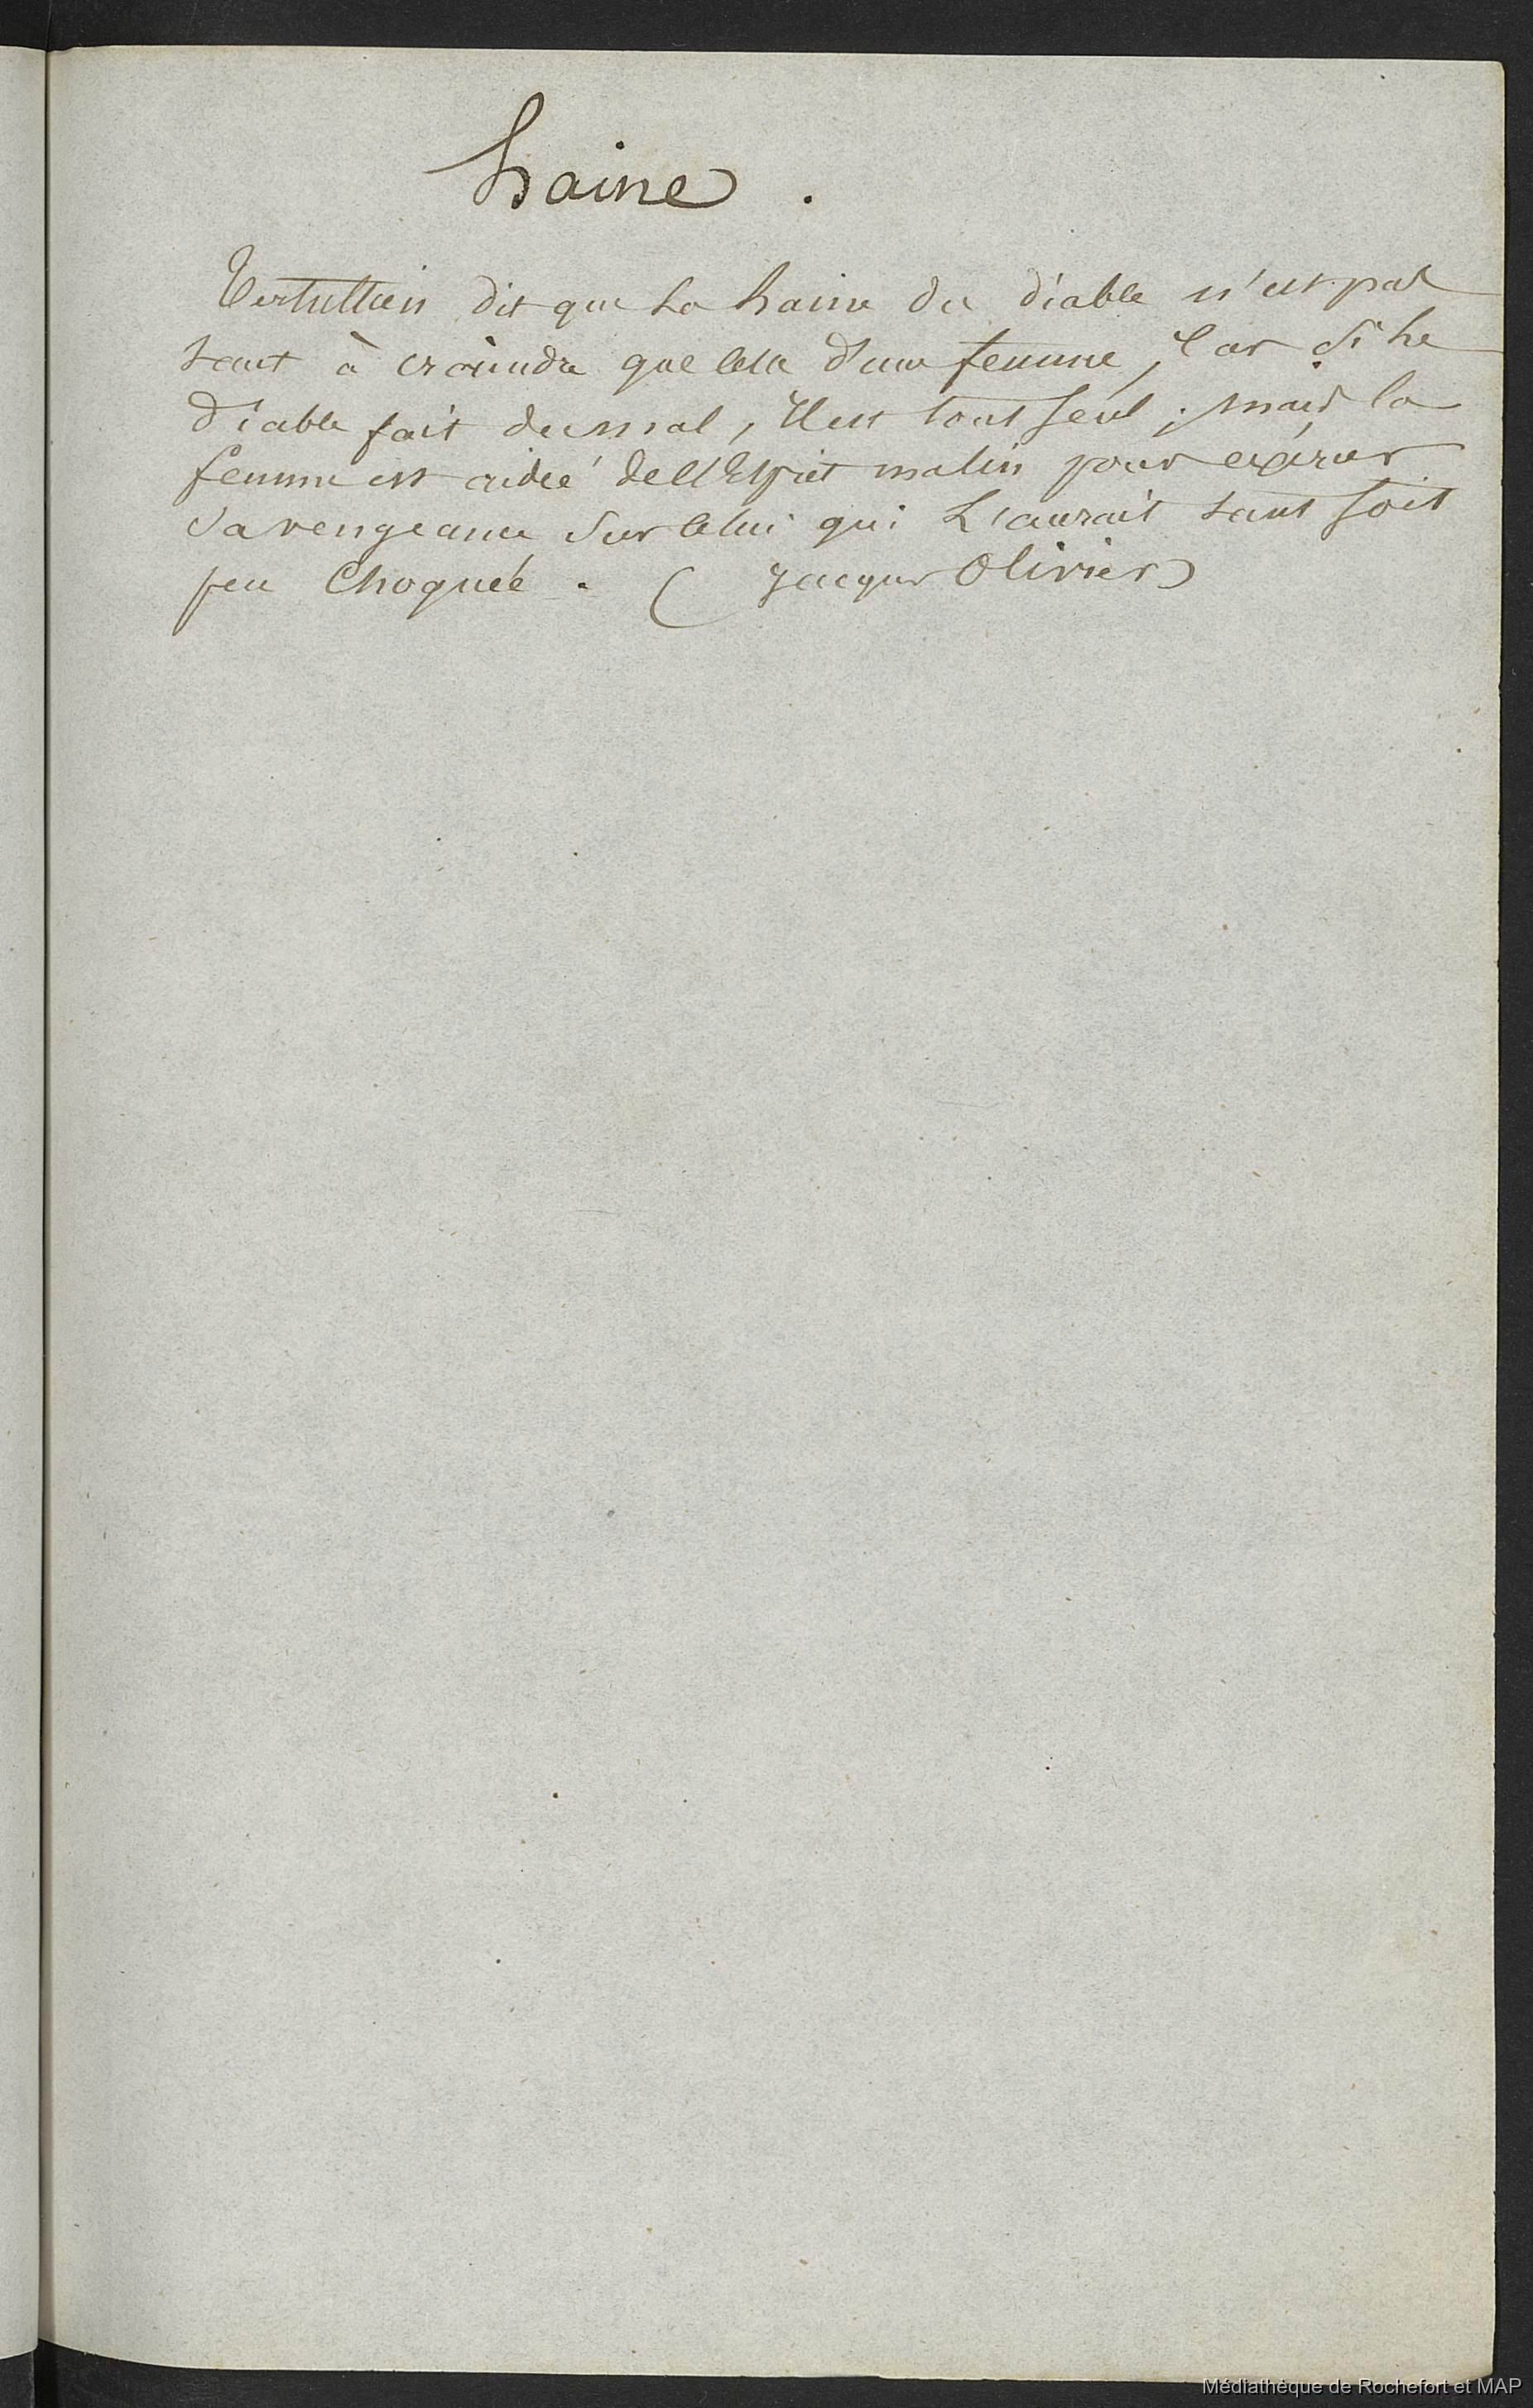 haine .
Tertullien dit que la haine du diable n'est pas
tant à craindre que celle d'une femme, Car si le
diable fait du mal, Il est tout seul ; mais la
femme est aidée de l'Esprit malin pour exercer
sa vengeance sur celui qui L'aurait tant soit
peu Choquée . ( Jacques Olivier)
Médiathèque de Rochefort et MAP